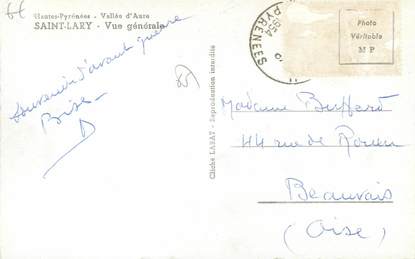 Hautes-Pyrénées - Vallée d'Aure
SAINT-LARY - Vue générale
Souvenir d'avant guerre
Bise
Cliché LABAT - Reproduction interdite
PYRENEES
Photo
Véritable
M P
Madame Buffard
44 rue de Rouen
Beauvais
(Oise)